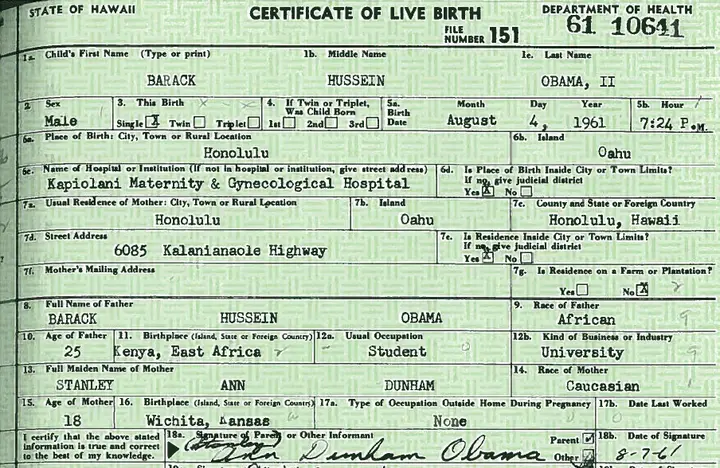 STATE OF HAWAII CERTIFICATE OF LIVE BIRTH DEPARTMENT OF HEALTH
FILE NUMBER 151 61 10641
1a. Child's First Name (Type or print) 1b. Middle Name 1c. Last Name
BARACK HUSSEIN OBAMA, II
2. Sex 3. This Birth 4. If Twin or Triplet, Was Child Born 5a. Birth Date Month Day Year 5b. Hour
Male Single X Twin Triplet 1st 2nd 3rd August 4, 1961 7:24 P.M.
6a. Place of Birth: City, Town or Rural Location 6b. Island
Honolulu Oahu
6c. Name of Hospital or Institution (If not in hospital or institution, give street address) 6d. Is Place of Birth Inside City or Town Limits? If no, give judicial district
Kapiolani Maternity & Gynecological Hospital Yes X No
7a. Usual Residence of Mother: City, Town or Rural Location 7b. Island 7c. County and State or Foreign Country
Honolulu Oahu Honolulu, Hawaii
7d. Street Address 7e. Is Residence Inside City or Town Limits? If no, give judicial district
6085 Kalanianaole Highway Yes X No
7f. Mother's Mailing Address 7g. Is Residence on a Farm or Plantation?
Yes No X
8. Full Name of Father 9. Race of Father
BARACK HUSSEIN OBAMA African
10. Age of Father 11. Birthplace (Island, State or Foreign Country) 12a. Usual Occupation 12b. Kind of Business or Industry
25 Kenya, East Africa Student University
13. Full Maiden Name of Mother 14. Race of Mother
STANLEY ANN DUNHAM Caucasian
15. Age of Mother 16. Birthplace (Island, State or Foreign Country) 17a. Type of Occupation Outside Home During Pregnancy 17b. Date Last Worked
18 Wichita, Kansas None
I certify that the above stated information is true and correct to the best of my knowledge. 18a. Signature of Parent or Other Informant Parent Other 18b. Date of Signature
(Stanley) Ann Dunham Obama 8-7-61